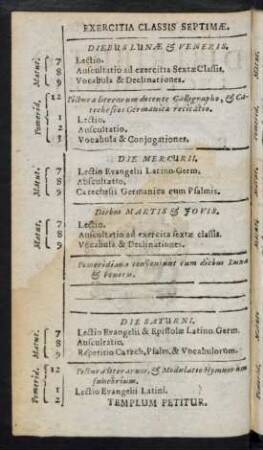 EXERCITIA CLASSIS SEPTIMÆ.
DIEBUS LUNÆ & VENERIS.
Matut.
7 Lectio.
8 Auscultatio ad exercitia Sextæ Classis.
9 Vocabula & Declinationes.
Pomerid.
12 Pictura literarum docente Calligrapho, & Ca-
techeseos Germanicæ recitatio.
1 Lectio.
2 Auscultatio.
3 Vocabula & Conjugationes.
DIE MERCURII.
Matut.
7 Lectio Evangelii Latino-Germ.
8 Abscultatio.
9 Catechesis Germanica cum Psalmis.
Diebus MARTIS & JOVIS.
Matut.
7 Lectio.
8 Auscultatio ad exercitia sextæ classis.
9 Vocabula & Declinationes.
Pomeridiana conveniunt cum diebus Lunæ
& Veneris.
DIE SATURNI.
Matut.
7 Lectio Evangelii & Epistolæ Latino-Germ.
8 Auscultatio.
9 Repetitio Catech, Psalm, & Vocabulorum.
Pomerid.
12 Pictura literarum, & Modulatio Hymnorum
funebrium.
1 Lectio Evangelii Latini.
2 TEMPLUM PETITUR.